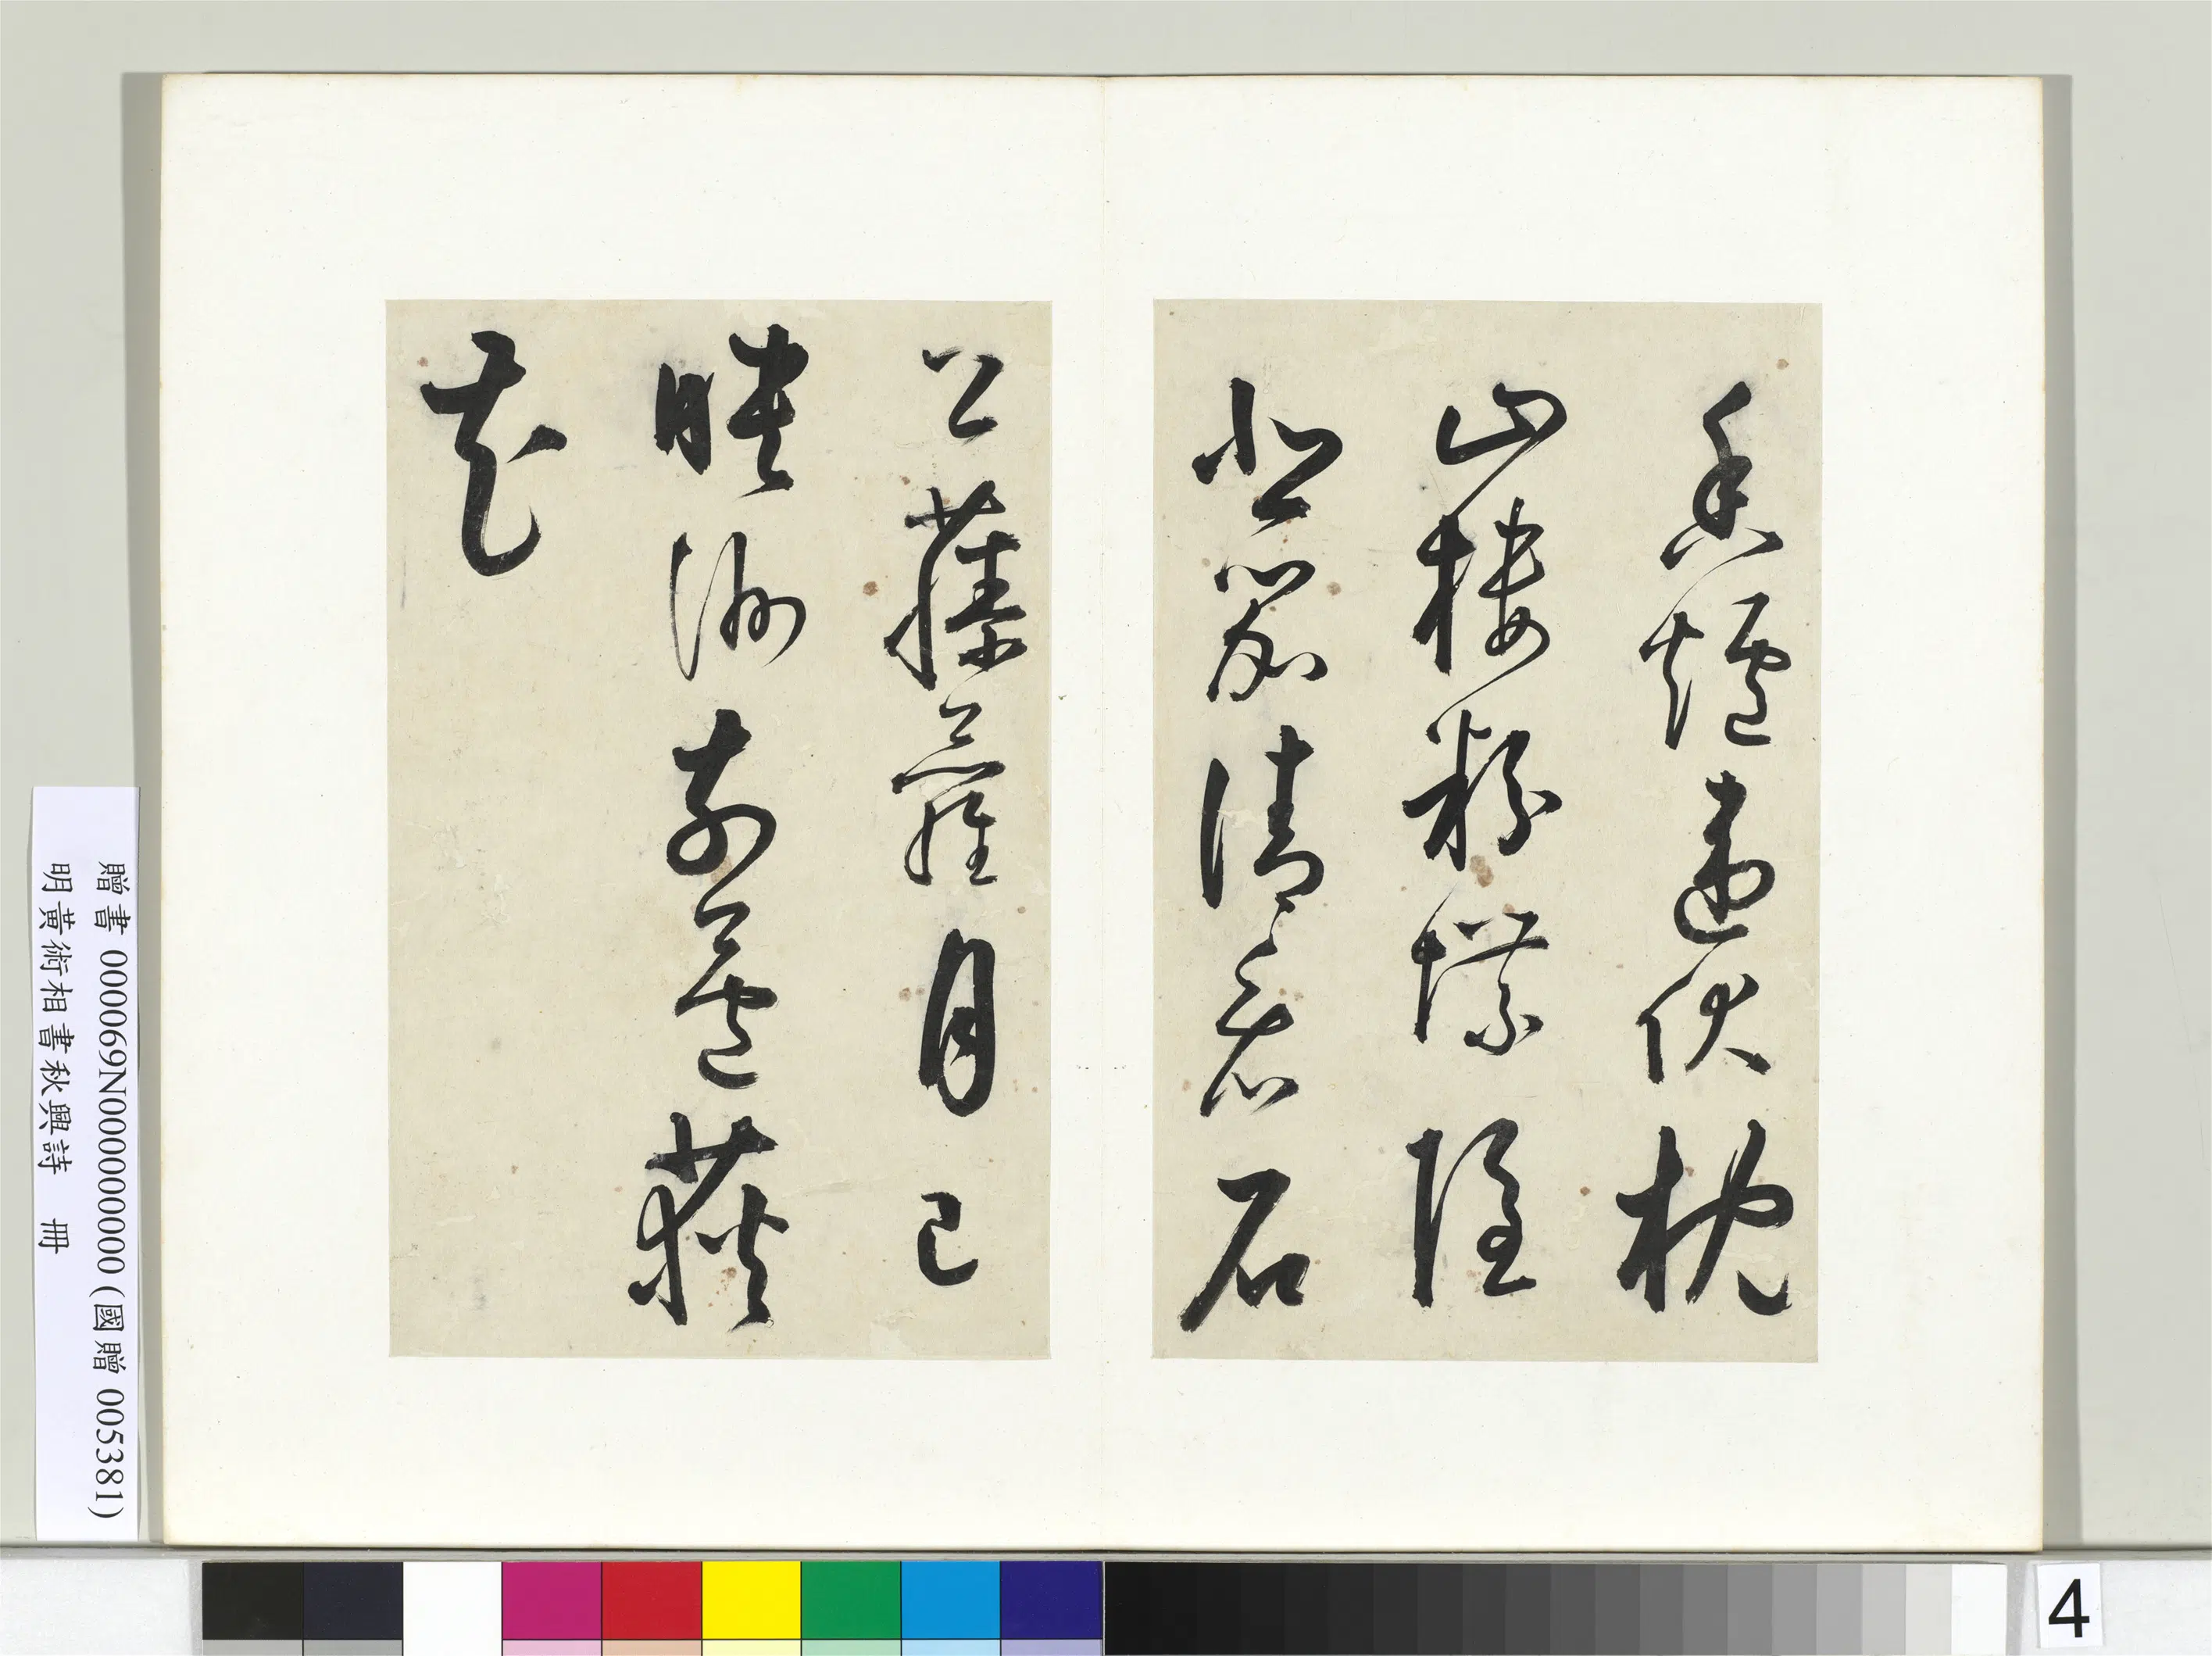 香爐違伏枕
山樓粉堞隱
悲笳請看石
上藤蘿月已
映洲前蘆荻
花
贈書 000069N000000000 (國贈 005381)
明黃術相書秋興詩 冊
4